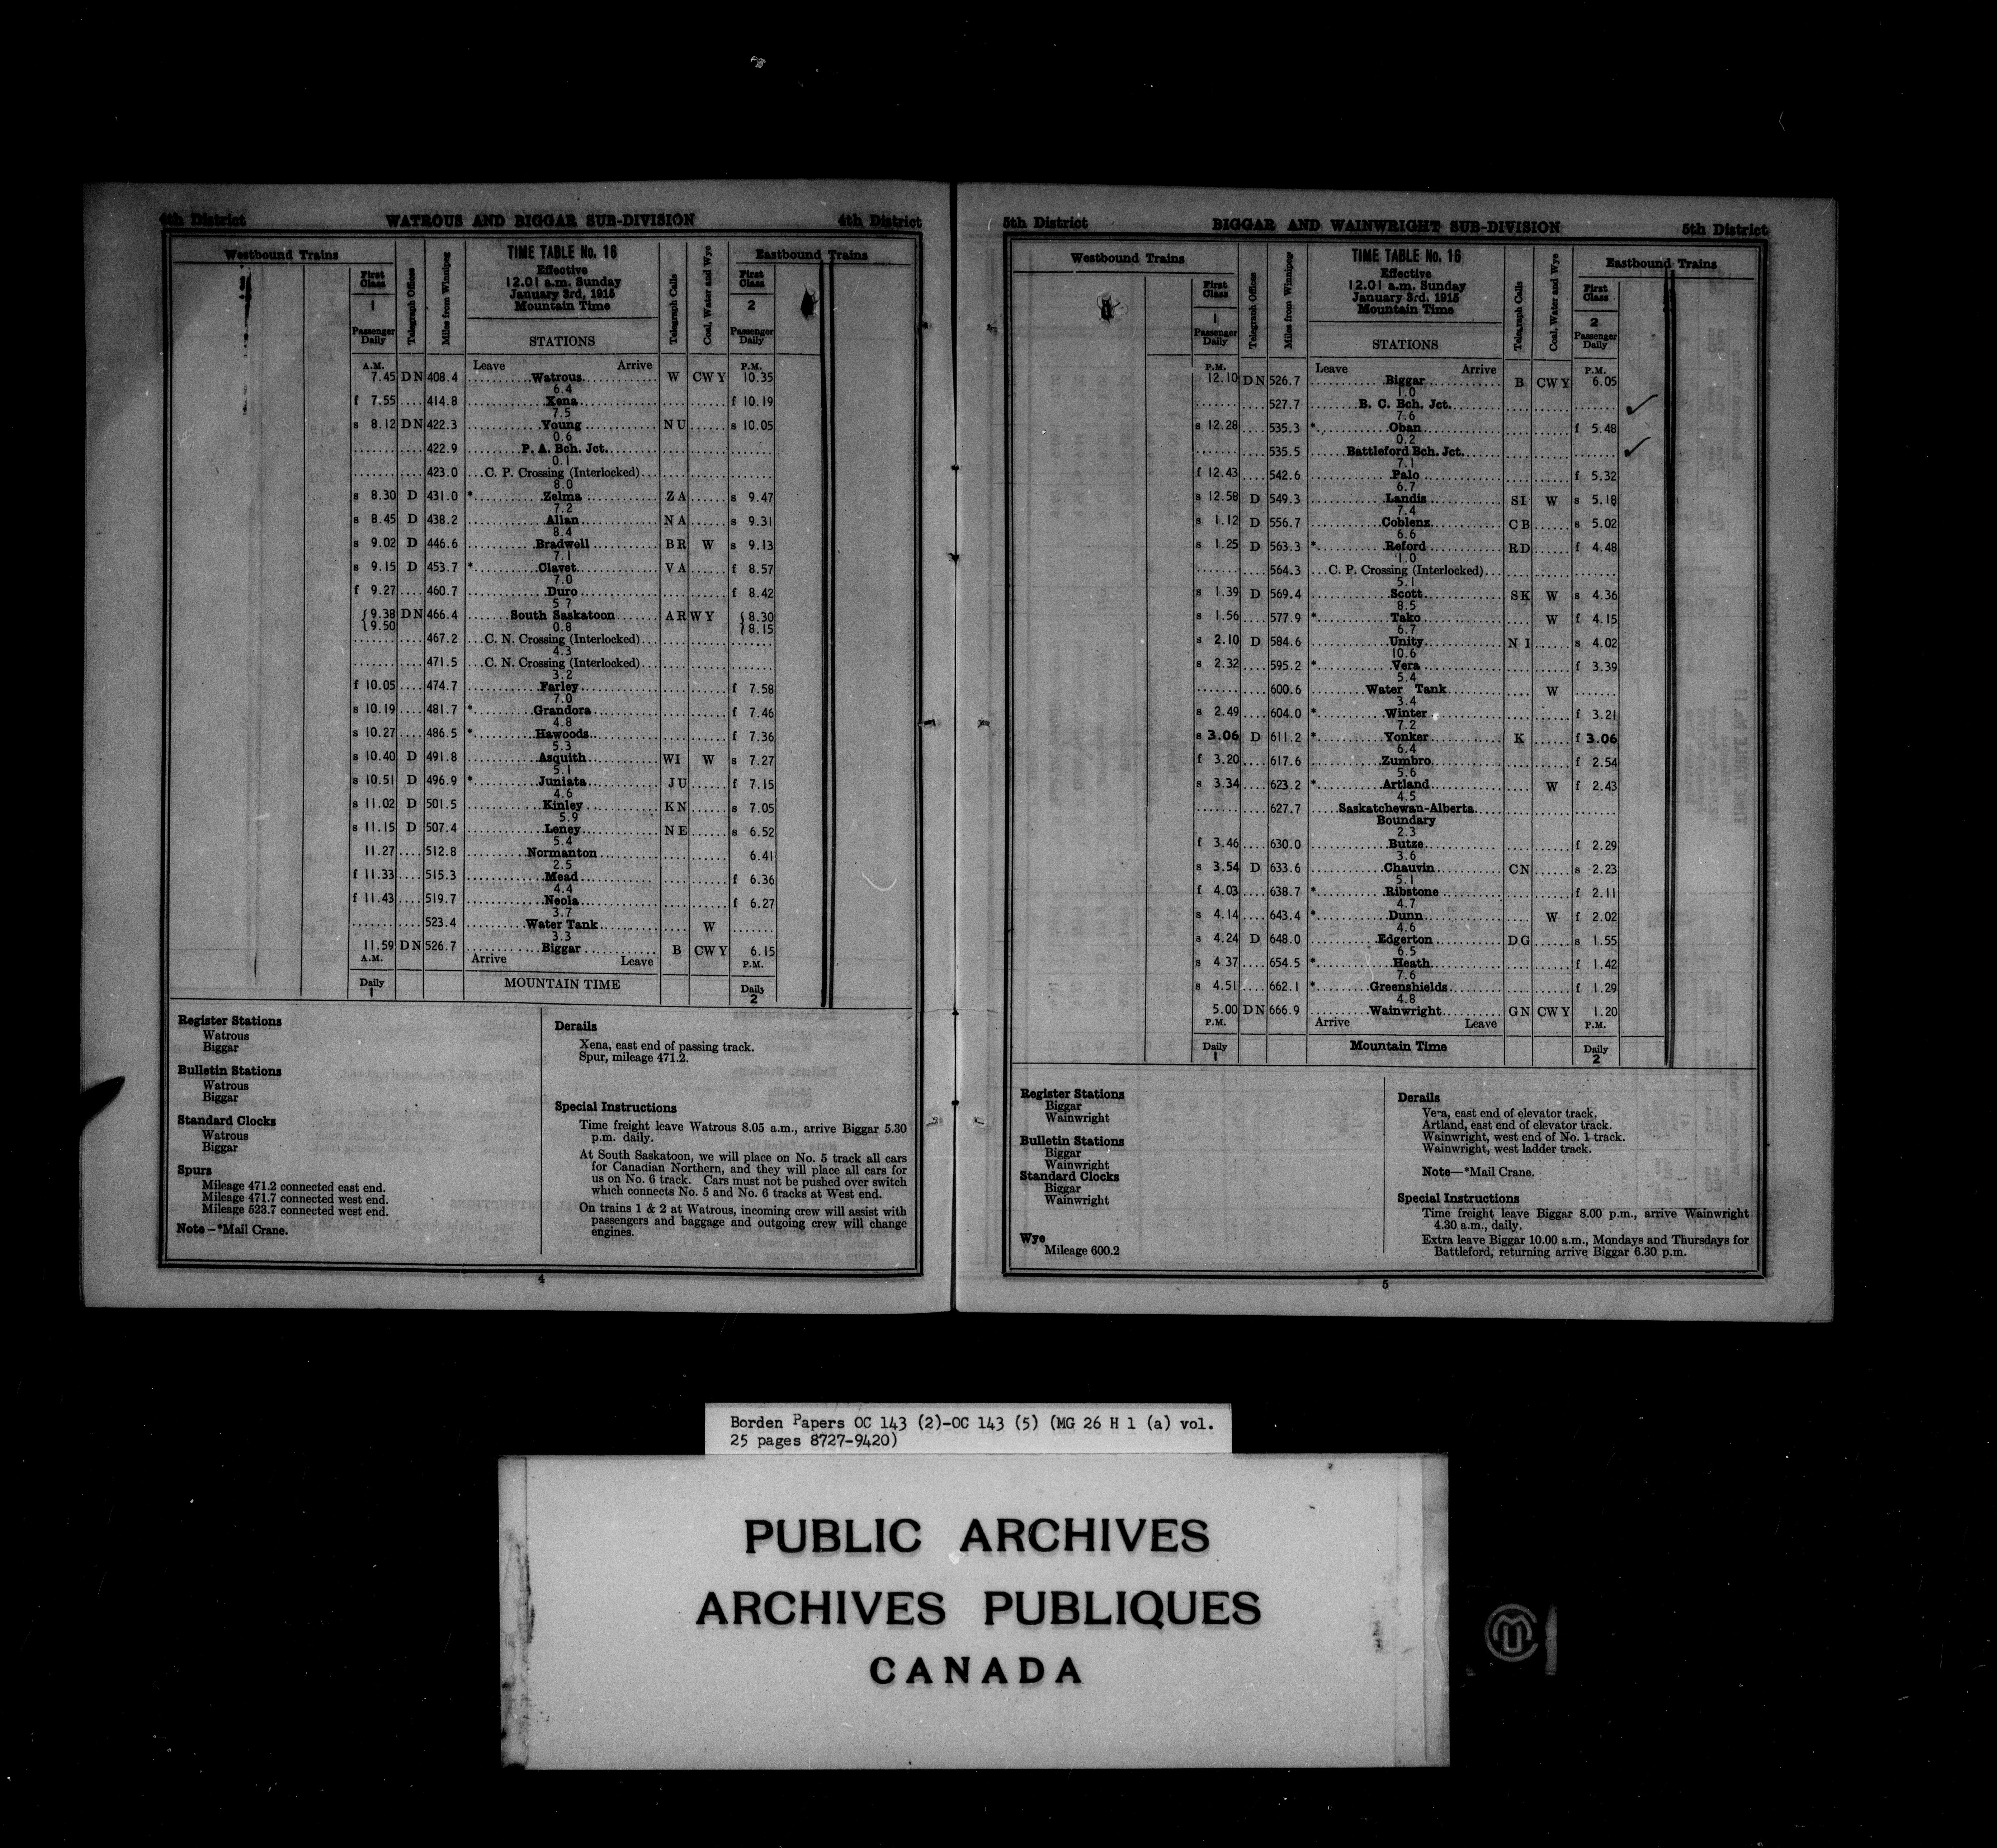 4th District WATROUS AND BIGGAR SUB-DIVISION 4th District
Westbound Trains Telegraph Offices Miles from Winnipeg TIME TABLE No. 16 Telegraph Calls Coal, Water and Wye Eastbound Trains
First Class Effective First Class
1 12.01 a.m. Sunday 2
January 3rd, 1915
Passenger Daily Mountain Time Passenger Daily
STATIONS
A.M. Leave Arrive P.M.
7.45 D N 408.4 Watrous W C W Y 10.35
6.4
f 7.55 414.8 Xena f 10.19
7.5
s 8.12 D N 422.3 Young N U s 10.05
0.6
422.9 P. A. Bch. Jct.
0.1
423.0 C. P. Crossing (Interlocked)
8.0
s 8.30 D 431.0 * Zelma Z A s 9.47
7.2
s 8.45 D 438.2 Allan N A s 9.31
8.4
s 9.02 D 446.6 Bradwell B R W s 9.13
7.1
s 9.15 D 453.7 * Clavet V A f 8.57
7.0
f 9.27 460.7 Duro f 8.42
5 7
{9.38 D N 466.4 South Saskatoon A R W Y {8.30
{9.50 0.8 {8.15
467.2 C. N. Crossing (Interlocked)
4.3
471.5 C. N. Crossing (Interlocked)
3.2
f 10.05 474.7 Farley f 7.58
7.0
s 10.19 481.7 * Grandora f 7.46
4.8
s 10.27 486.5 * Hawoods f 7.36
5.3
s 10.40 D 491.8 Asquith W I W s 7.27
5.1
s 10.51 D 496.9 * Juniata J U f 7.15
4.6
s 11.02 D 501.5 Kinley K N s 7.05
5.9
s 11.15 D 507.4 Leney N E s 6.52
5.4
11.27 512.8 Normanton 6.41
2.5
f 11.33 515.3 Mead f 6.36
4.4
f 11.43 519.7 Neola f 6.27
3.7
523.4 Water Tank W
3.3
11.59 D N 526.7 Biggar B C W Y 6.15
A.M. Arrive Leave P.M.
Daily 1 MOUNTAIN TIME Daily 2
Register Stations
Watrous
Biggar
Bulletin Stations
Watrous
Biggar
Standard Clocks
Watrous
Biggar
Spurs
Mileage 471.2 connected east end.
Mileage 471.7 connected west end.
Mileage 523.7 connected west end.
Note—*Mail Crane.
Derails
Xena, east end of passing track.
Spur, mileage 471.2.
Special Instructions
Time freight leave Watrous 8.05 a.m., arrive Biggar 5.30
p.m. daily.
At South Saskatoon, we will place on No. 5 track all cars
for Canadian Northern, and they will place all cars for
us on No. 6 track. Cars must not be pushed over switch
which connects No. 5 and No. 6 tracks at West end.
On trains 1 & 2 at Watrous, incoming crew will assist with
passengers and baggage and outgoing crew will change
engines.
4
5th District BIGGAR AND WAINWRIGHT SUB-DIVISION 5th District
Westbound Trains Telegraph Offices Miles from Winnipeg TIME TABLE No. 16 Telegraph Calls Coal, Water and Wye Eastbound Trains
First Class Effective First Class
1 12.01 a.m. Sunday 2
January 3rd, 1915
Passenger Daily Mountain Time Passenger Daily
STATIONS
P.M. Leave Arrive P.M.
12.10 D N 526.7 Biggar B C W Y 6.05
1.0
527.7 B. C. Bch. Jct.
7.6
s 12.28 535.3 * Oban f 5.48
0.2
535.5 Battleford Bch. Jct.
7.1
f 12.43 542.6 Palo f 5.32
6.7
s 12.58 D 549.3 Landis S I W s 5.18
7.4
s 1.12 D 556.7 Coblenz C B s 5.02
6.6
s 1.25 D 563.3 * Reford R D f 4.48
1.0
564.3 C. P. Crossing (Interlocked)
5.1
s 1.39 D 569.4 Scott S K W s 4.36
8.5
s 1.56 577.9 * Tako W f 4.15
6.7
s 2.10 D 584.6 Unity N I s 4.02
10.6
s 2.32 595.2 * Vera f 3.39
5.4
600.6 Water Tank W
3.4
s 2.49 604.0 * Winter f 3.21
7.2
s 3.06 D 611.2 * Yonker K f 3.06
6.4
f 3.20 617.6 Zumbro f 2.54
5.6
s 3.34 623.2 * Artland W f 2.43
4.5
627.7 Saskatchewan-Alberta
Boundary
2.3
f 3.46 630.0 Butze f 2.29
3.6
s 3.54 D 633.6 Chauvin C N s 2.23
5.1
f 4.03 638.7 * Ribstone f 2.11
4.7
s 4.14 643.4 * Dunn W f 2.02
4.6
s 4.24 D 648.0 Edgerton D G s 1.55
6.5
s 4.37 654.5 * Heath f 1.42
7.6
s 4.51 662.1 * Greenshields f 1.29
4.8
5.00 D N 666.9 Wainwright G N C W Y 1.20
P.M. Arrive Leave P.M.
Daily 1 Mountain Time Daily 2
Register Stations
Biggar
Wainwright
Bulletin Stations
Biggar
Wainwright
Standard Clocks
Biggar
Wainwright
Wye
Mileage 600.2
Derails
Vera, east end of elevator track.
Artland, east end of elevator track.
Wainwright, west end of No. 1 track.
Wainwright, west ladder track.
Note—*Mail Crane.
Special Instructions
Time freight leave Biggar 8.00 p.m., arrive Wainwright
4.30 a.m., daily.
Extra leave Biggar 10.00 a.m., Mondays and Thursdays for
Battleford, returning arrive Biggar 6.30 p.m.
5
Borden Papers OC 143 (2)-OC 143 (5) (MG 26 H 1 (a) vol.
25 pages 8727-9420)
PUBLIC ARCHIVES
ARCHIVES PUBLIQUES
CANADA